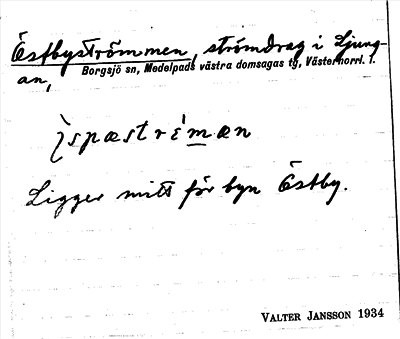 Östbyströmmen, strömdrag i Ljung-
an, Borgsjö sn, Medelpads västra domsagas tg, Västernorrl. l.
Ligger mitt för byn Östby.
VALTER JANSSON 1934